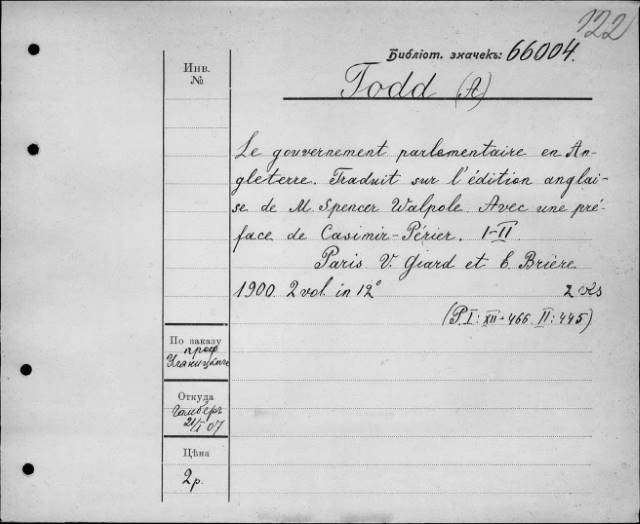 122
Библіот. значекъ: 66004.
Инв.
№
Todd (A)
Le gouvernement parlementaire en An-
gleterre. Traduit sur l'édition anglai-
se de M. Spencer Walpole. Avec une pré-
face de Casimir-Périer. I-II
Paris V. Giard et E. Brière
1900. 2 vol. in 12°
(P I: XII+466 II: 445)
По заказу
проф
Откуда
21/I 07
Цѣна
2р.